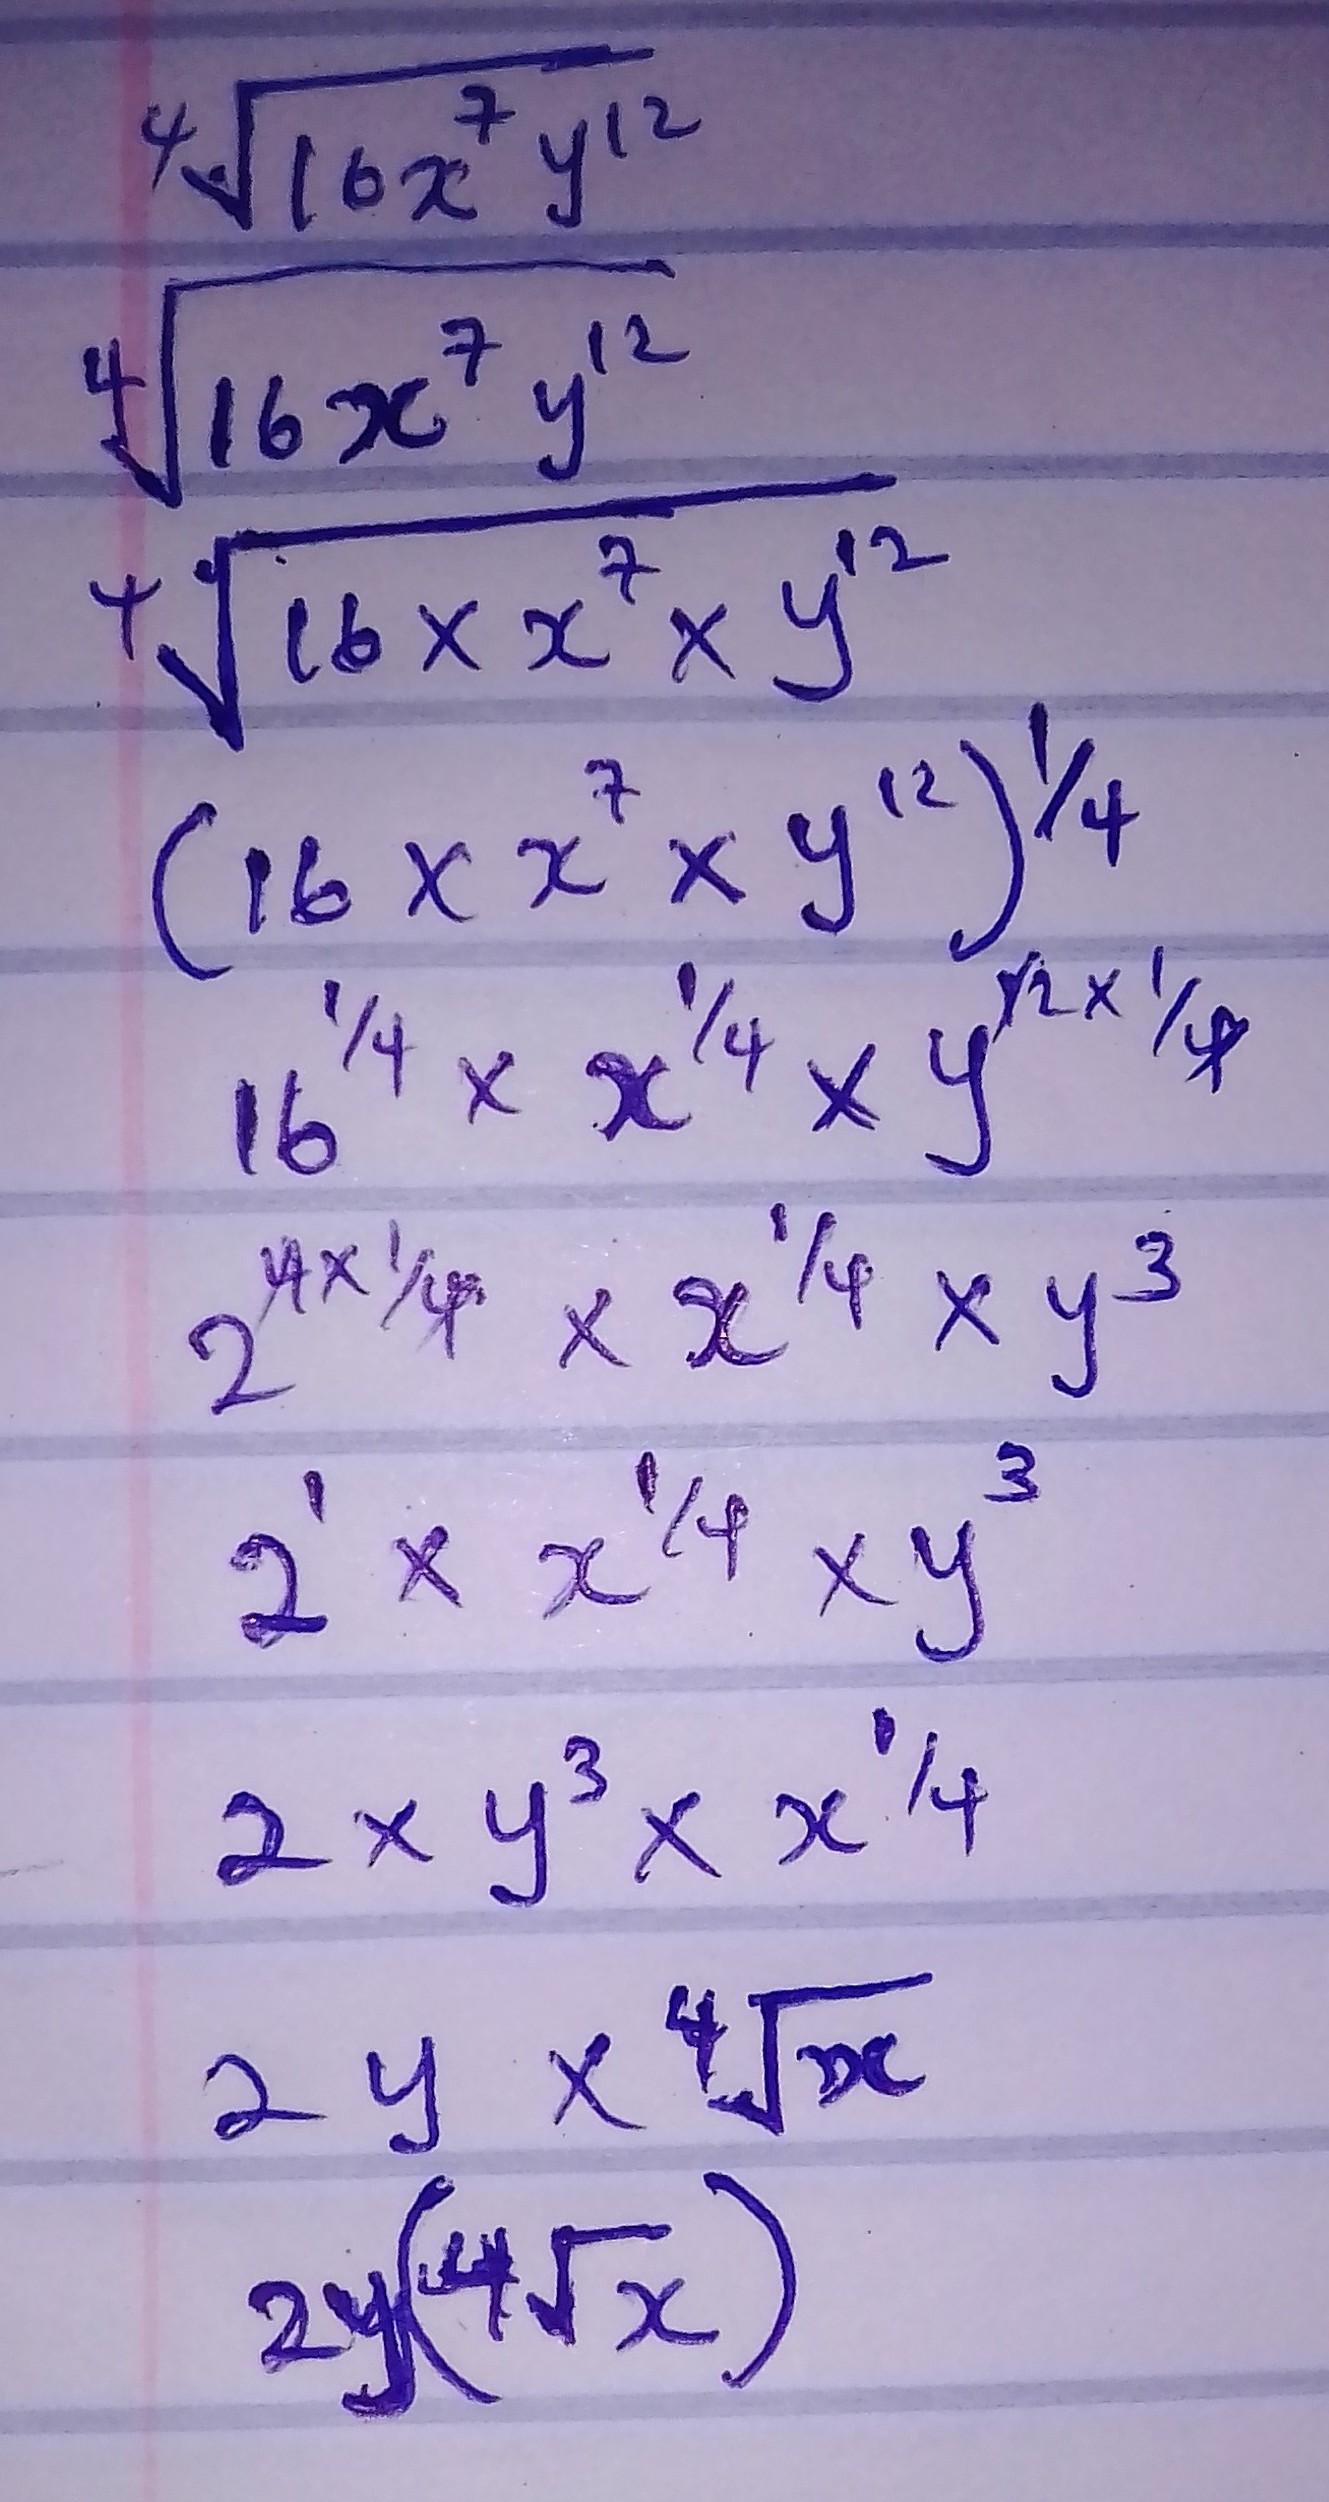 ⁴√(16x⁷y¹²)
⁴√(16x⁷y¹²)
⁴√(16 × x⁷ × y¹²)
(16 × x⁷ × y¹²)^1/4
16^1/4 × x^1/4 × y^12×1/4
2^4×1/4 × x^1/4 × y³
2¹ × x^1/4 × y³
2 × y³ × x^1/4
2y × ⁴√x
2y(⁴√x)